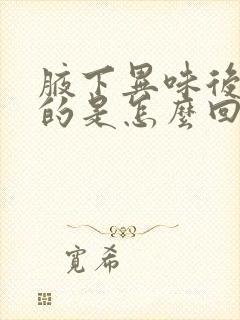 腋下異味後
的是怎麼回
寬希